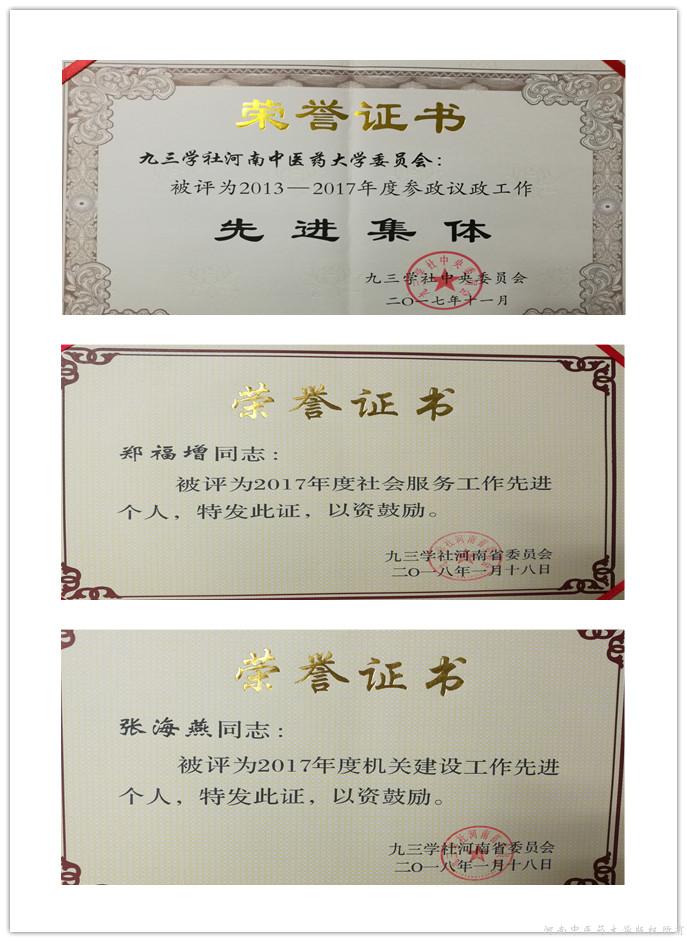 荣誉证书
九三学社河南中医药大学委员会：
被评为2013—2017年度参政议政工作
先进集体
九三学社中央委员会
二〇一七年十一月
荣誉证书
郑福增同志：
被评为2017年度社会服务工作先进
个人，特发此证，以资鼓励。
九三学社河南省委员会
二〇一八年一月十八日
荣誉证书
张海燕同志：
被评为2017年度机关建设工作先进
个人，特发此证，以资鼓励。
九三学社河南省委员会
二〇一八年一月十八日
河南中医药大学版权所有